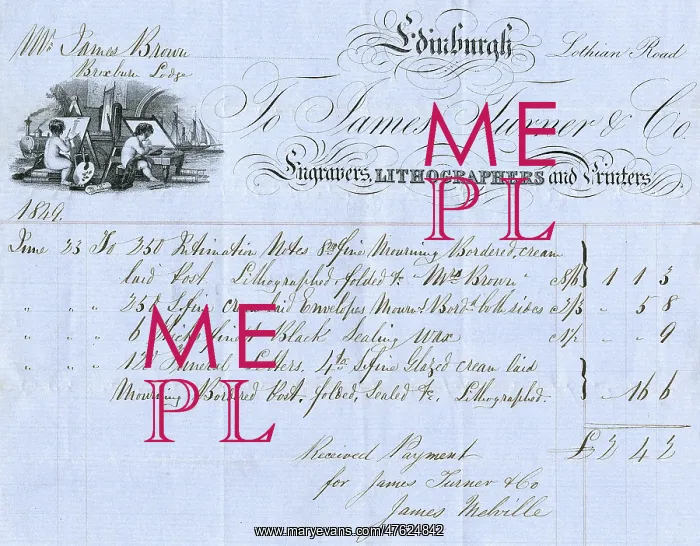 Edinburgh
Lothian Road
Mr James Brown
Broxburn Lodge
To James Turner & Co.
Engravers, LITHOGRAPHERS and Printers.
1849.
June 23 To 250 Intimation Notes 8vo fine Mourning Bordered, cream
laid Post. Lithographed, folded &c "Mrs Brown" 1 1 3
" " " 250 S.fine cream laid Envelopes Mourng Bordd both sides 2/3 " 5 8
" " " 6 Sticks finest Black Sealing Wax " " 9
" " " 120 Funeral Letters, 4to S.fine Glazed cream laid
Mourning Bordered Post, folded, Sealed &c, Lithographed. " 16 6
£2 4 2
Received Payment
for James Turner & Co
James Melville
ME
PL
ME
PL
www.maryevans.com/47624842